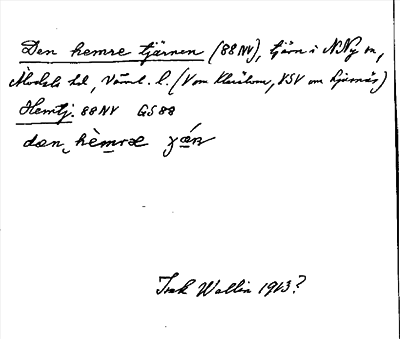 Den hemre tjärnen (88NV), tjärn i N.Ny sn,
Älvdals hd, Värml. l. (V om Klarälven, VSV om Ljusnäs)
Hemtj. 88NV GS88
dæn, hèmræ
Isak Wallin 1913?